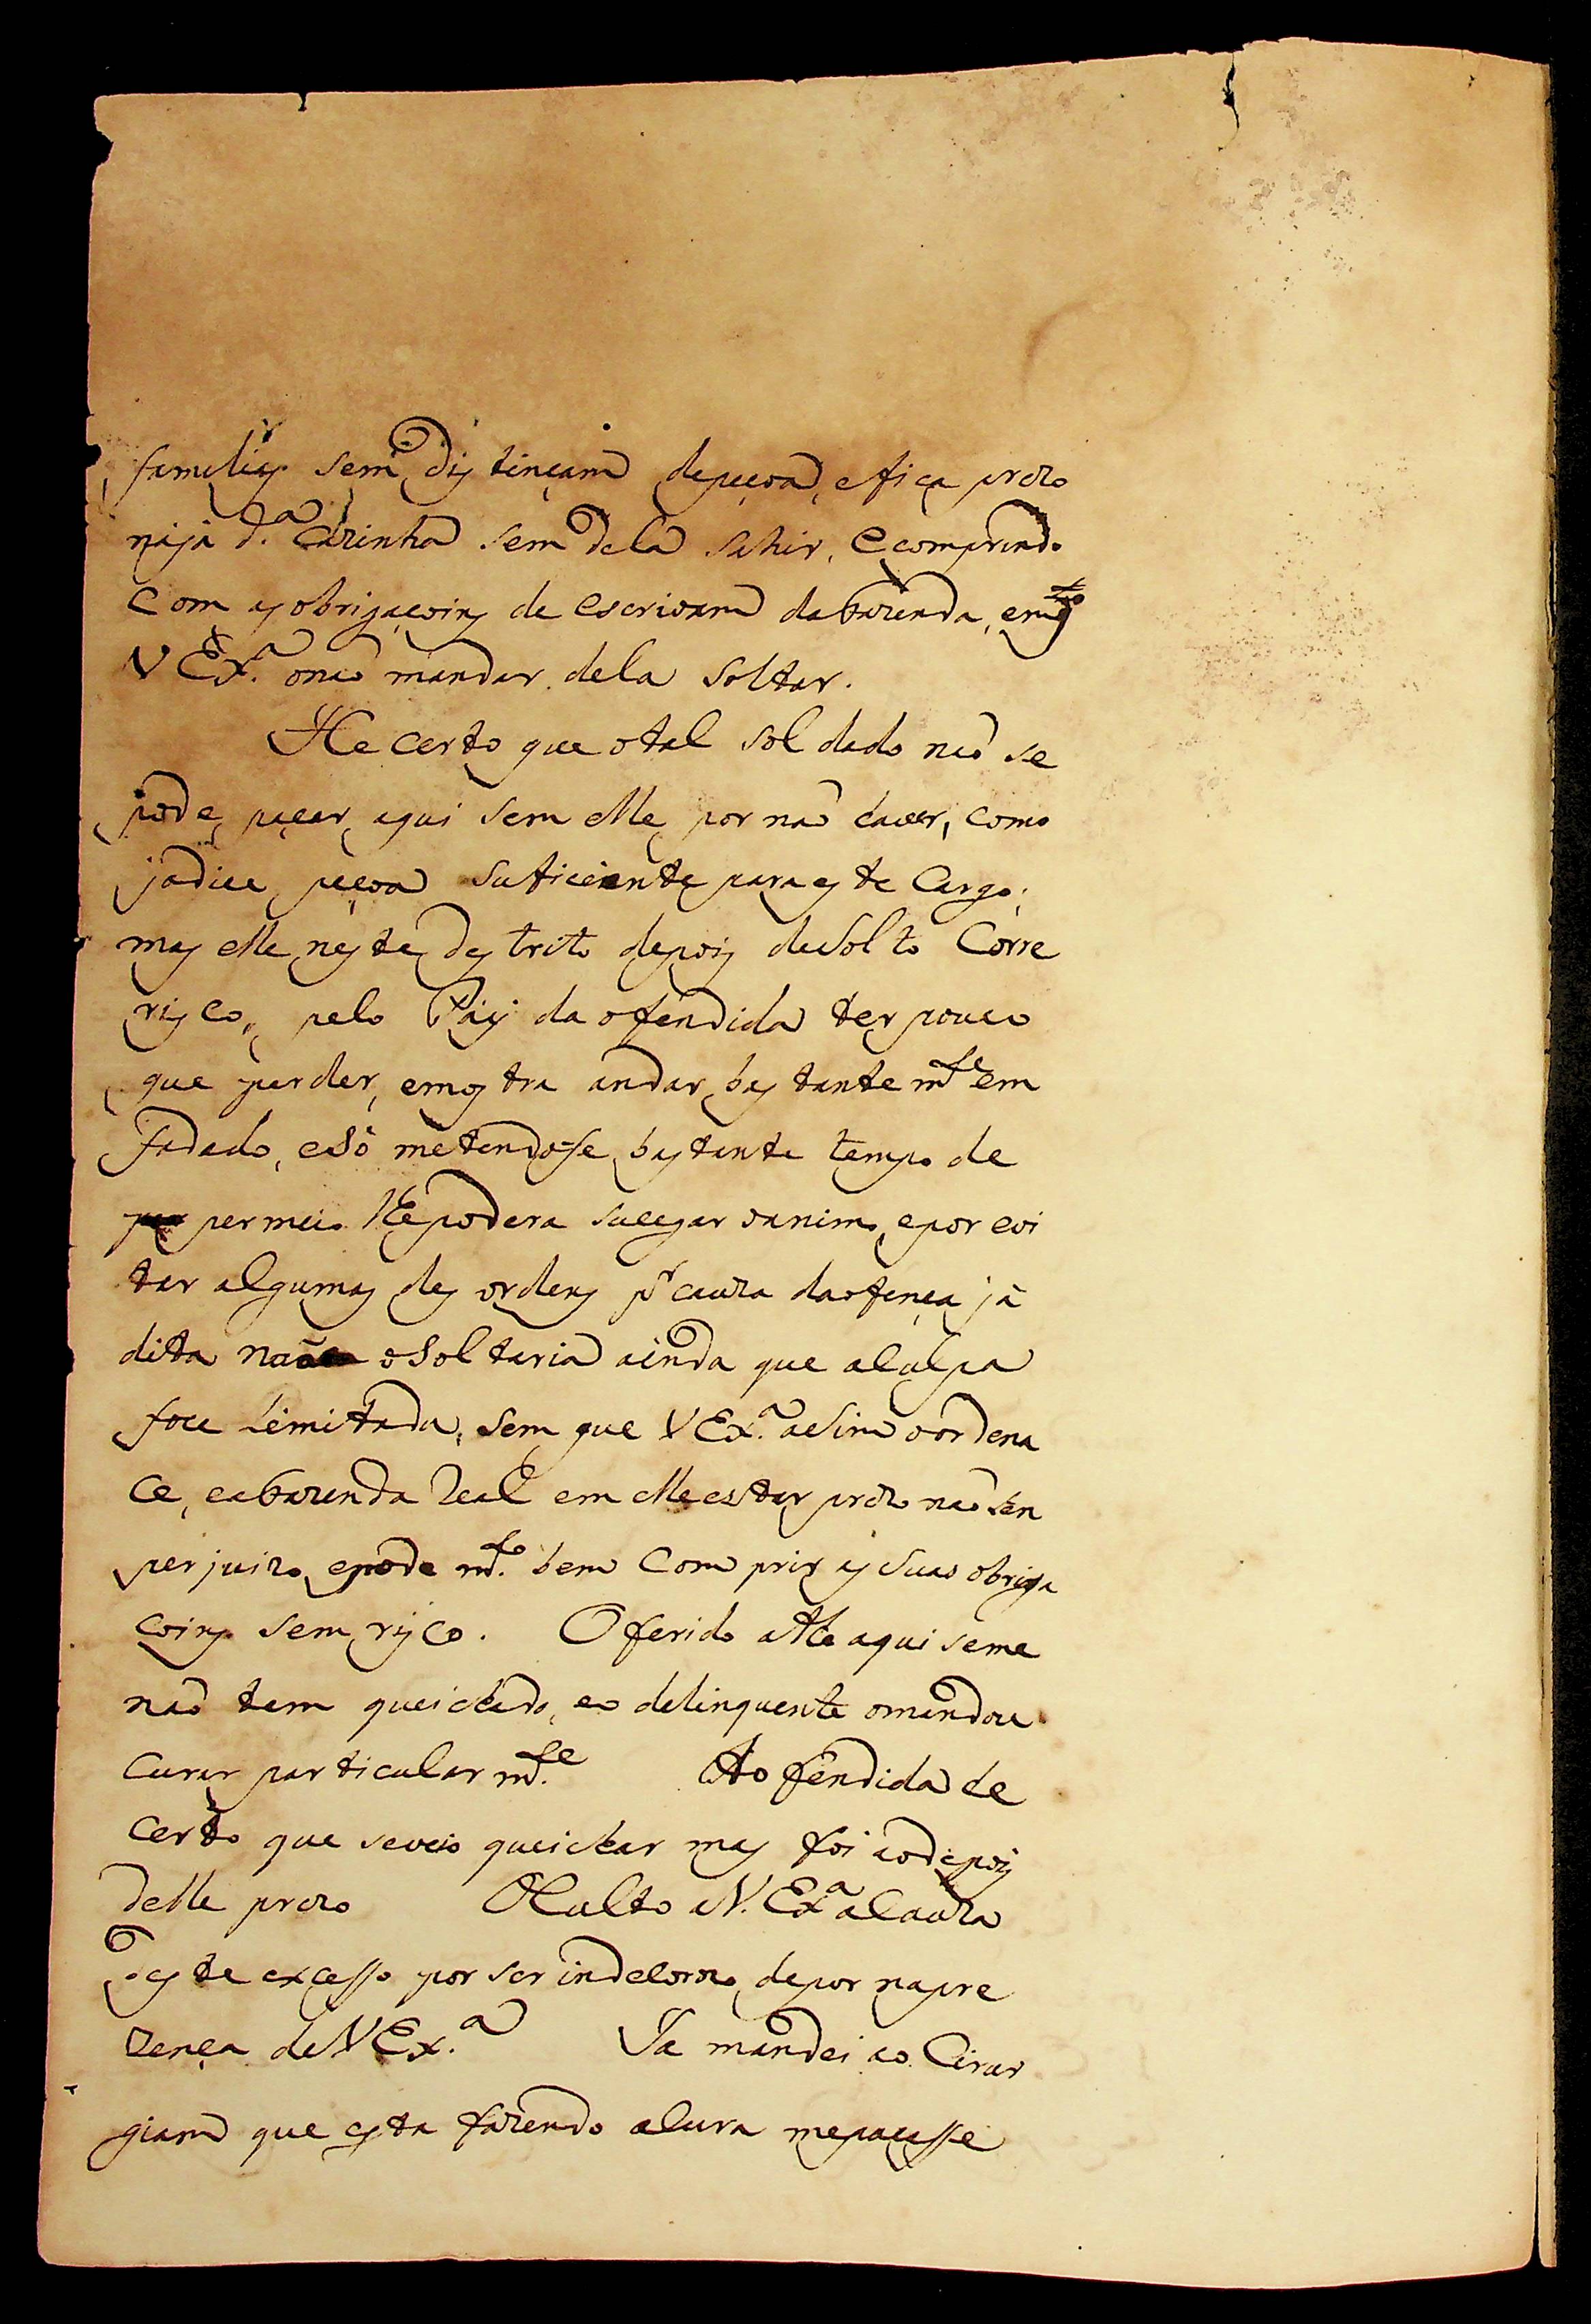 familias sem distinçam depeçoa, efica prezo
naja d.ª Cazinha sem dela sahir, Ecomprindo
Com as obrigaçoins de Escrivam dafazenda, emqto
V Ex.ª onaõ mandar dela Soltar.
He certo que otal Soldado naõ se
pode paçar aqui sem elle por naõ haver, como
jadice peçoa suficiente para este Cargo;
mas elle neste destrito depois deSolto Corre
risco, pelo Pay da ofendida ter pouco
que perder, emostra andar bastante mte em
fadado, esó metendosse bastante tempo de
permeio he podera sucegar oanimo, epor evi
tar algumas desordens pr cauza daofença já
dita naõ oSoltaria ainda que aculpa
foce Limitada, sem que V Ex.ª aSim oordena
ce, eafazenda Real em elle estar prezo naõ tem
perjuizo, epode mto. bem Comprir as suas obriga
coins sem risco. Oferido athe aqui seme
naõ tem queichado, eo delinquente omandou
Curar particular mte. Aofendida he
certo que seveio queichar mas foi aodepois
delle prezo Oculto aV. Ex.ª acauza
deste excesso por ser indecorozo depor napre
zença deV Ex.ª Ja mandei ao Cirur
giam que esta fazendo acura mepacasse